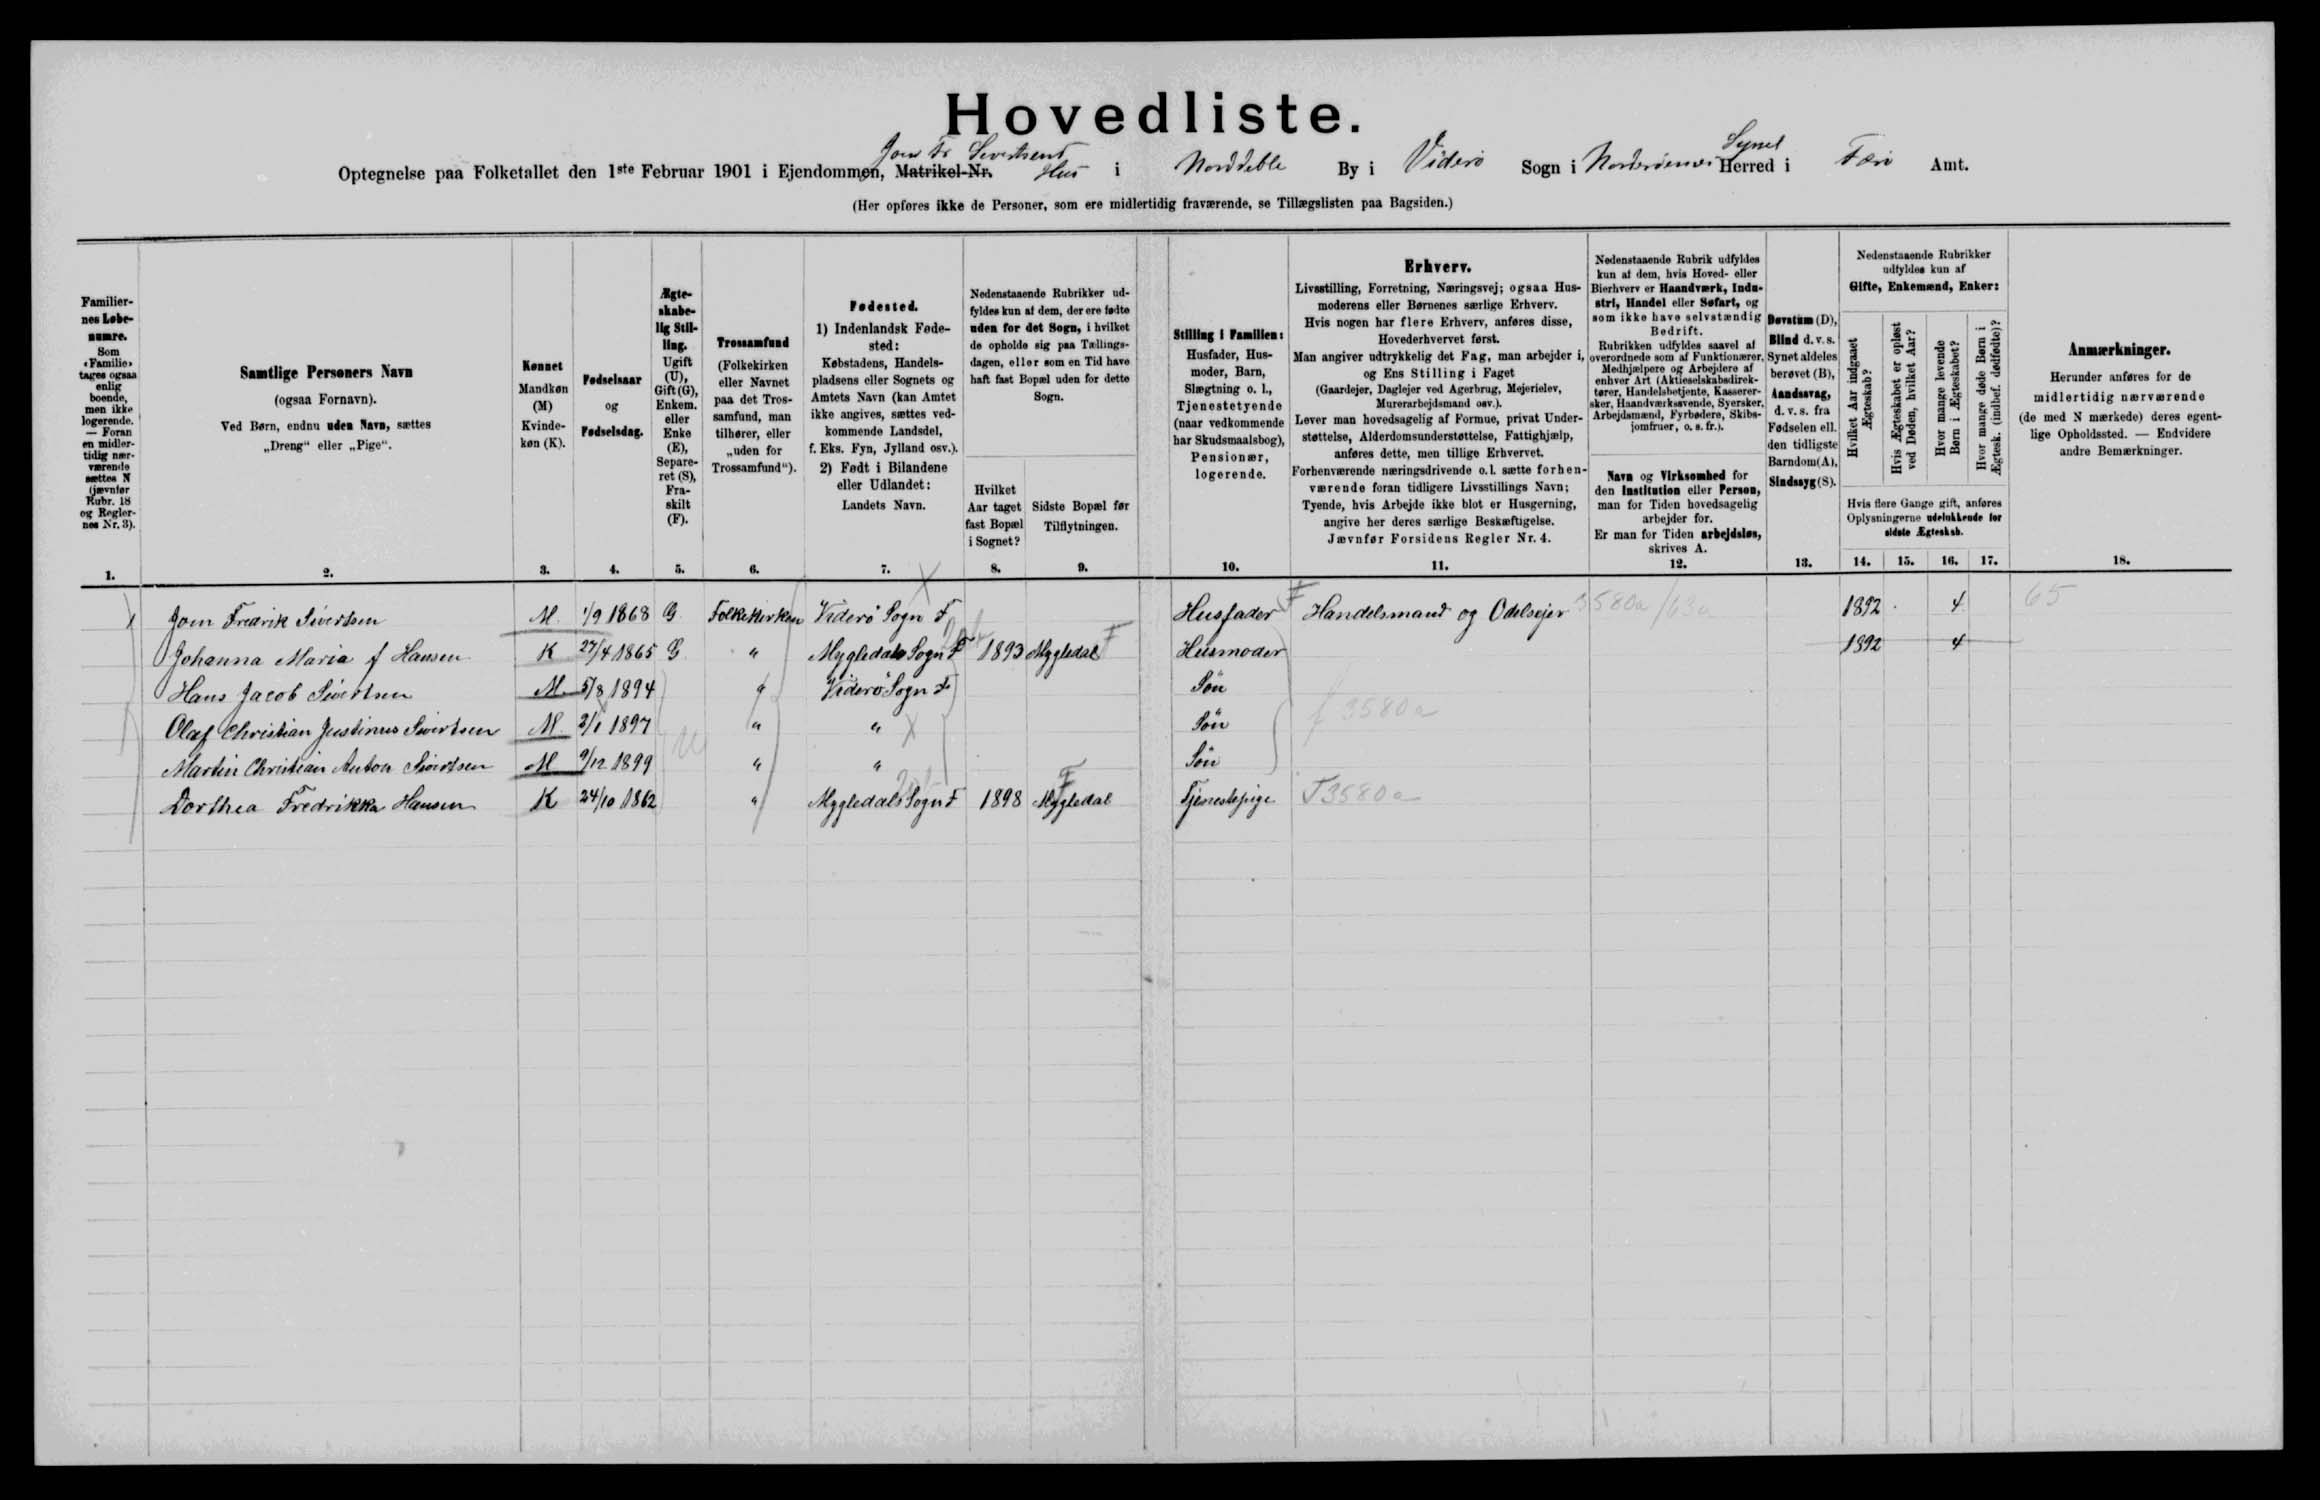 Hovedliste.
Joen Fr Sivertsens
Optegnelse paa Folketallet den 1ste Februar 1901 i Ejendommen, Matrikel-Nr. Hus i Norddeble By i Viderö Sogn i Norderöernes Herred i Færö Amt.
Sysel
(Her opføres ikke de Personer, som ere midlertidig fraværende, se Tillægslisten paa Bagsiden.)
Familiernes Løbenumre.
Som «Familie» tages ogsaa enlig boende, men ikke logerende. — Foran en midlertidig nærværende sættes N (jævnfør Rubr. 18 og Reglernes Nr. 3).
1.
Samtlige Personers Navn
(ogsaa Fornavn).
Ved Børn, endnu uden Navn, sættes
„Dreng“ eller „Pige“.
2.
Kønnet
Mandkøn (M)
Kvindekøn (K).
3.
Fødselsaar
og
Fødselsdag.
4.
Ægteskabelig Stilling.
Ugift (U), Gift (G), Enkem. eller Enke (E), Separeret (S), Fraskilt (F).
5.
Trossamfund
(Folkekirken eller Navnet paa det Trossamfund, man tilhører, eller „uden for Trossamfund“).
6.
Fødested.
1) Indenlandsk Fødested:
Købstadens, Handelspladsens eller Sognets og Amtets Navn (kan Amtet ikke angives, sættes vedkommende Landsdel, f. Eks. Fyn, Jylland osv.).
2) Født i Bilandene eller Udlandet:
Landets Navn.
7.
Nedenstaaende Rubrikker udfyldes kun af dem, der ere fødte uden for det Sogn, i hvilket de opholde sig paa Tællingsdagen, eller som en Tid have haft fast Bopæl uden for dette Sogn.
Hvilket Aar taget fast Bopæl i Sognet?
8.
Sidste Bopæl før Tilflytningen.
9.
Stilling i Familien:
Husfader, Husmoder, Barn, Slægtning o. l., Tjenestetyende (naar vedkommende har Skudsmaalsbog), Pensionær, logerende.
10.
Erhverv.
Livsstilling, Forretning, Næringsvej; ogsaa Husmoderens eller Børnenes særlige Erhverv.
Hvis nogen har flere Erhverv, anføres disse, Hovederhvervet først.
Man angiver udtrykkelig det Fag, man arbejder i, og Ens Stilling i Faget
(Gaardejer, Daglejer ved Agerbrug, Mejerielev, Murerarbejdsmand osv.).
Lever man hovedsagelig af Formue, privat Understøttelse, Alderdomsunderstøttelse, Fattighjælp, anføres dette, men tillige Erhvervet.
Forhenværende næringsdrivende o. l. sætte forhenværende foran tidligere Livsstillings Navn;
Tyende, hvis Arbejde ikke blot er Husgerning, angive her deres særlige Beskæftigelse.
Jævnfør Forsidens Regler Nr. 4.
11.
Nedenstaaende Rubrik udfyldes kun af dem, hvis Hoved- eller Bierhverv er Haandværk, Industri, Handel eller Søfart, og som ikke have selvstændig Bedrift.
Rubrikken udfyldes saavel af overordnede som af Funktionærer, Medhjælpere og Arbejdere af enhver Art (Aktieselskabsdirektører, Handelsbetjente, Kasserersker, Haandværkssvende, Syersker, Arbejdsmænd, Fyrbødere, Skibsjomfruer, o. s. fr.).
Navn og Virksomhed for den Institution eller Person, man for Tiden hovedsagelig arbejder for.
Er man for Tiden arbejdsløs, skrives A.
12.
Døvstum (D),
Blind d. v. s. Synet aldeles berøvet (B),
Aandssvag, d. v. s. fra Fødselen ell. den tidligste Barndom (A),
Sindssyg (S).
13.
Nedenstaaende Rubrikker udfyldes kun af
Gifte, Enkemænd, Enker:
Hvilket Aar indgaaet Ægteskab?
Hvis Ægteskabet er opløst ved Døden, hvilket Aar?
Hvor mange levende Børn i Ægteskabet?
Hvor mange døde Børn i Ægtesk. (indbef. dødfødte)?
Hvis flere Gange gift, anføres Oplysningerne udelukkende for sidste Ægteskab.
14. 15. 16. 17.
Anmærkninger.
Herunder anføres for de midlertidig nærværende (de med N mærkede) deres egentlige Opholdssted. — Endvidere andre Bemærkninger.
18.
1 Joen Fredrik Sivertsen M. 1/9 1868 G Folkekirken Viderö Sogn F Husfader Handelsmand og Odelsejer 3580a/63a 1892 4 65
Johanna Maria f Hansen K 27/4 1865 G " Mygledals Sogn F 1893 Mygledal F Husmoder 1892 4
Hans Jacob Sivertsen M. 5/8 1894 " Viderö Sogn F Sön
Olaf Christian Justinus Sivertsen M. 2/1 1897 U " " Sön f 3580a
Martin Christian Anton Sivertsen M 9/12 1899 " " Sön
Dorthea Fredrikka Hansen K 24/10 1862 " Mygledals Sogn F 1898 Mygledal F Tjenestepige T3580a